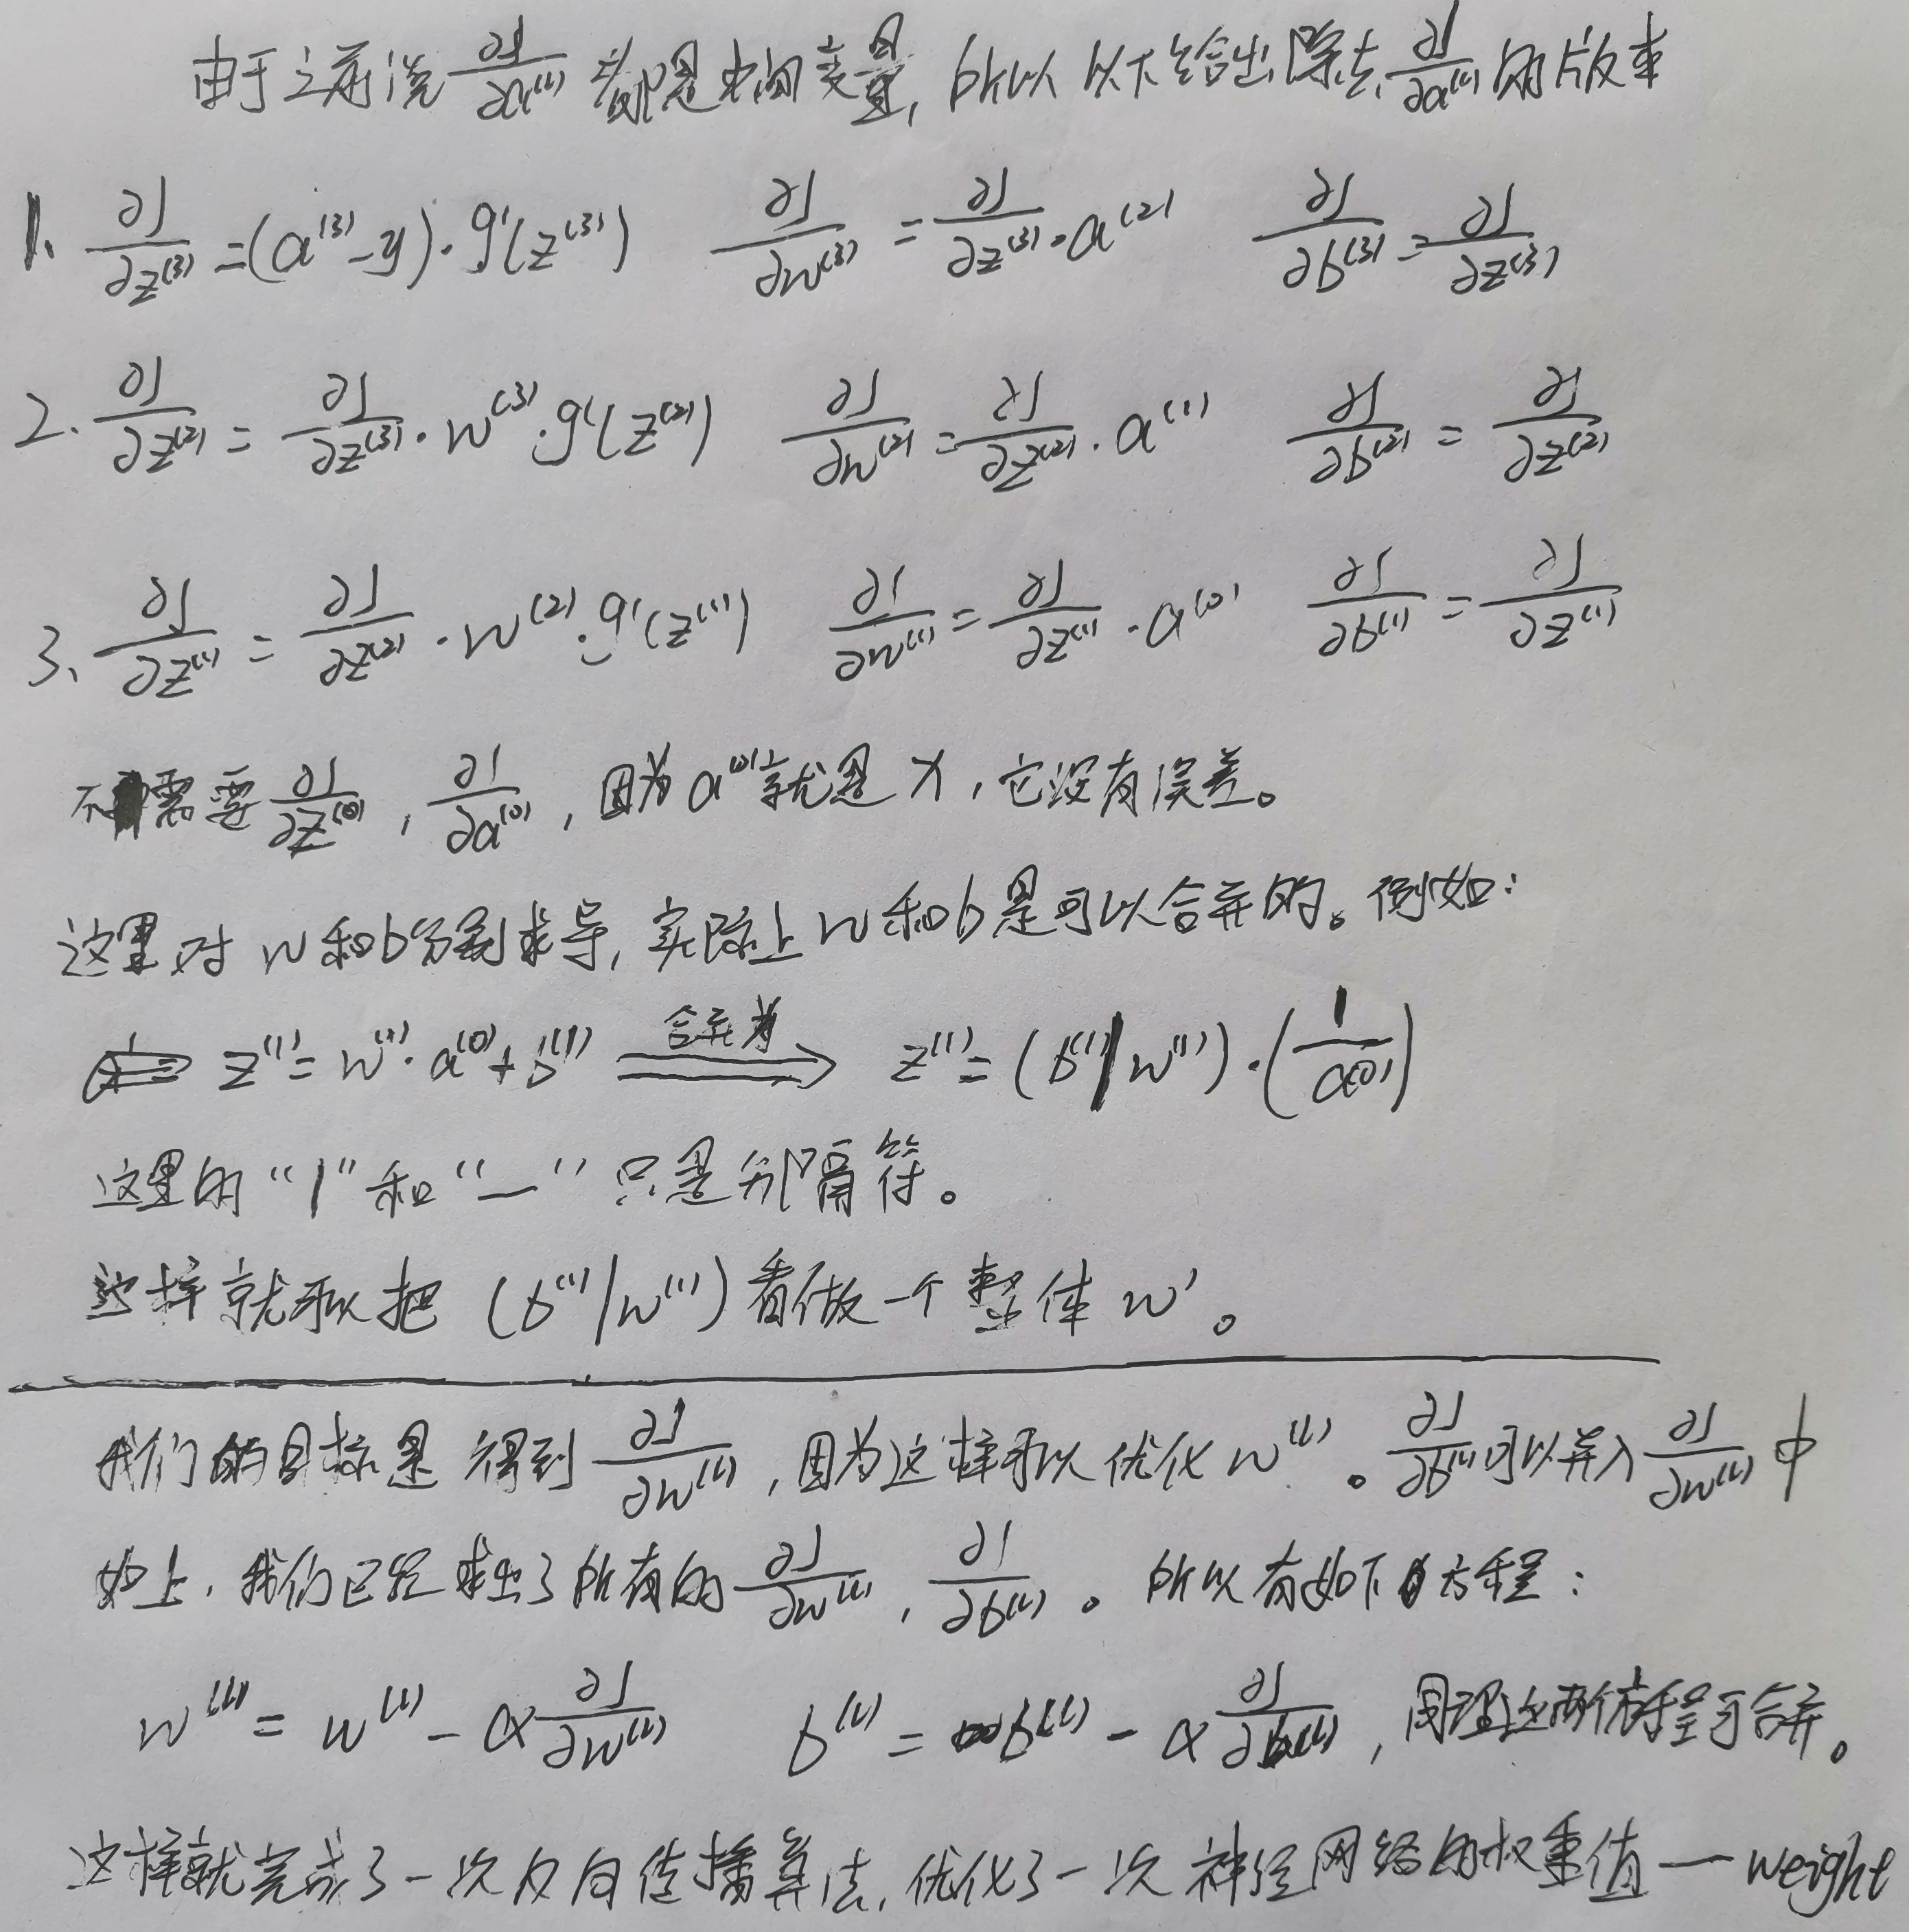 由于之前说 ∂J/∂a⁽ˡ⁾ 都是中间变量, 所以以下给出除去 ∂J/∂a⁽ˡ⁾ 的版本
1、∂J/∂z⁽³⁾ = (a⁽³⁾-y)·g'(z⁽³⁾) ∂J/∂w⁽³⁾ = ∂J/∂z⁽³⁾·a⁽²⁾ ∂J/∂b⁽³⁾ = ∂J/∂z⁽³⁾
2、∂J/∂z⁽²⁾ = ∂J/∂z⁽³⁾·w⁽³⁾·g'(z⁽²⁾) ∂J/∂w⁽²⁾ = ∂J/∂z⁽²⁾·a⁽¹⁾ ∂J/∂b⁽²⁾ = ∂J/∂z⁽²⁾
3、∂J/∂z⁽¹⁾ = ∂J/∂z⁽²⁾·w⁽²⁾·g'(z⁽¹⁾) ∂J/∂w⁽¹⁾ = ∂J/∂z⁽¹⁾·a⁽⁰⁾ ∂J/∂b⁽¹⁾ = ∂J/∂z⁽¹⁾
不需要 ∂J/∂z⁽⁰⁾, ∂J/∂a⁽⁰⁾, 因为 a⁽⁰⁾ 就是 x, 它没有误差。
这里对 w 和 b 分别求导, 实际上 w 和 b 是可以合并的。例如:
z⁽¹⁾ = w⁽¹⁾·a⁽⁰⁾+b⁽¹⁾ 合并为⟹ z⁽¹⁾ = (b⁽¹⁾|w⁽¹⁾)·(1/a⁽⁰⁾)
这里的 "|" 和 "—" 只是分隔符。
这样就可以把 (b⁽¹⁾|w⁽¹⁾) 看做一个整体 w'。
我们的目标是得到 ∂J/∂w⁽ˡ⁾, 因为这样可以优化 w⁽ˡ⁾。∂J/∂b⁽ˡ⁾ 可以并入 ∂J/∂w⁽ˡ⁾ 中
如上, 我们已经求出了所有的 ∂J/∂w⁽ˡ⁾, ∂J/∂b⁽ˡ⁾。所以有如下方程:
w⁽ˡ⁾ = w⁽ˡ⁾ - α ∂J/∂w⁽ˡ⁾ b⁽ˡ⁾ = b⁽ˡ⁾ - α ∂J/∂b⁽ˡ⁾, 同理这两个方程可合并。
这样就完成了一次反向传播算法, 优化了一次神经网络的权重值—weight